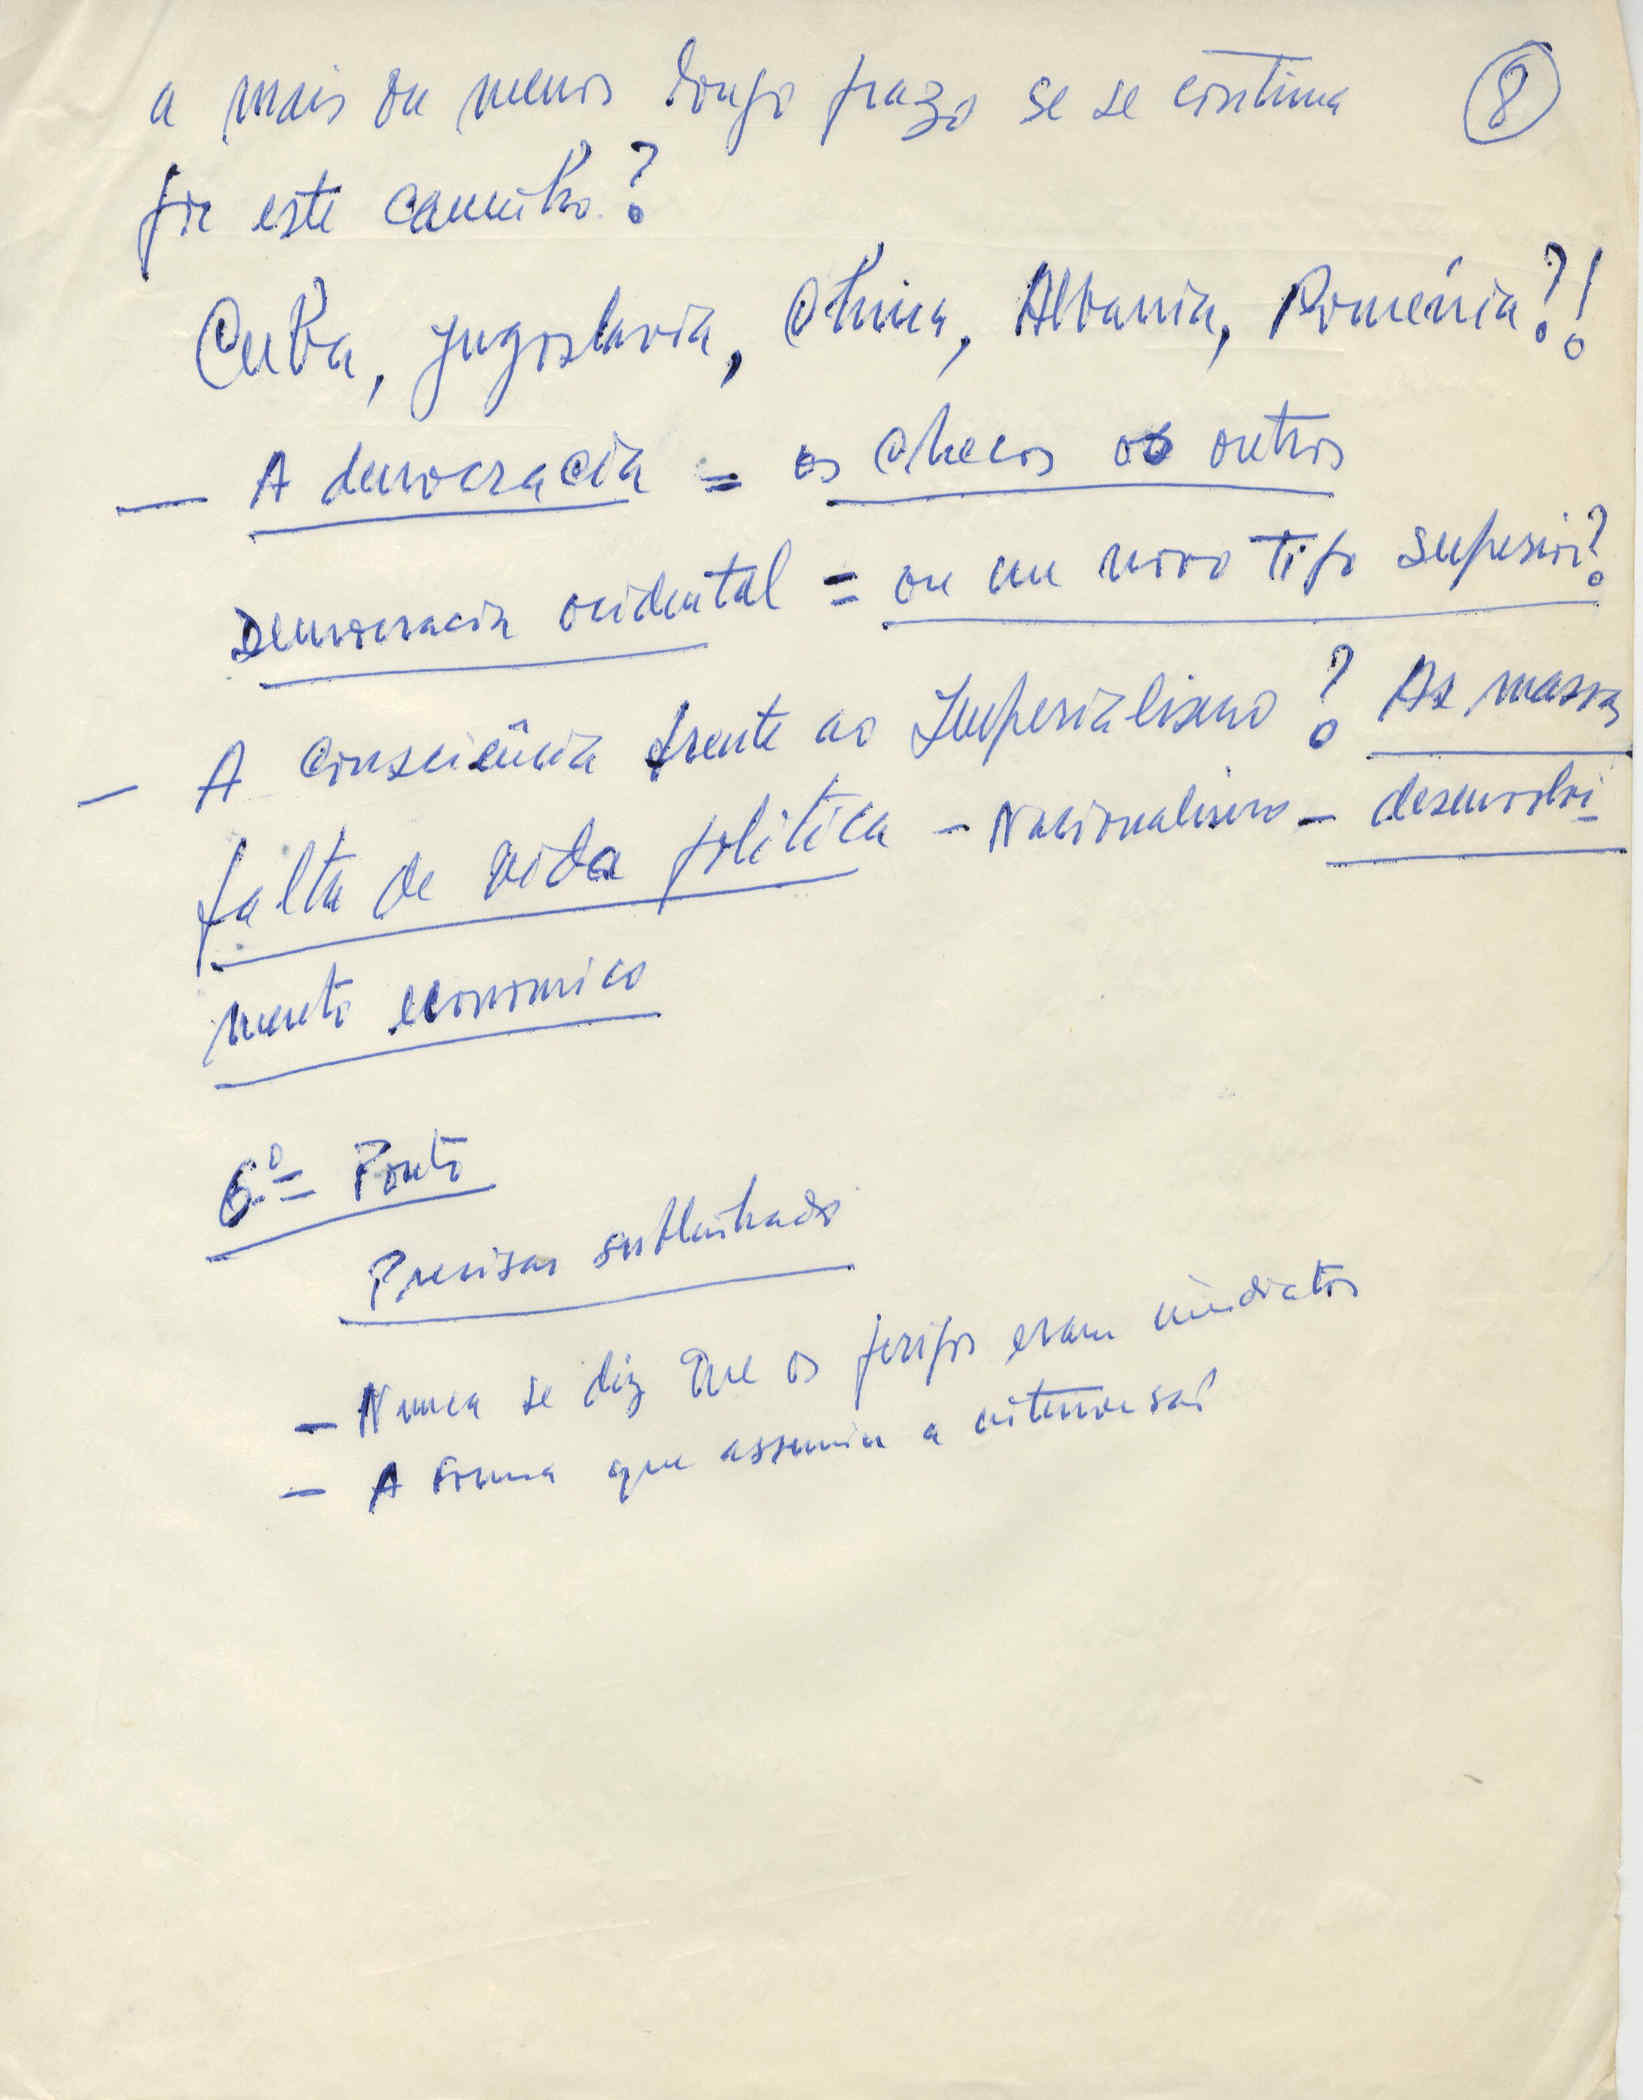 a mais ou menos longo prazo se se continua ⑧
por este caminho?
Cuba, Jugoslavia, China, Albania, Roménia?!
— A democracia = os checos os outros
Democracia ocidental = ou um novo tipo superior?
— A consciência frente ao Imperialismo? As massas
falta de vida politica – Nacionalismo – desenvolvi
mento economico
6º = Ponto
Precisar sublinhado
– Nunca se diz que os perigos eram imediatos
– A forma que assumiu a intervensão